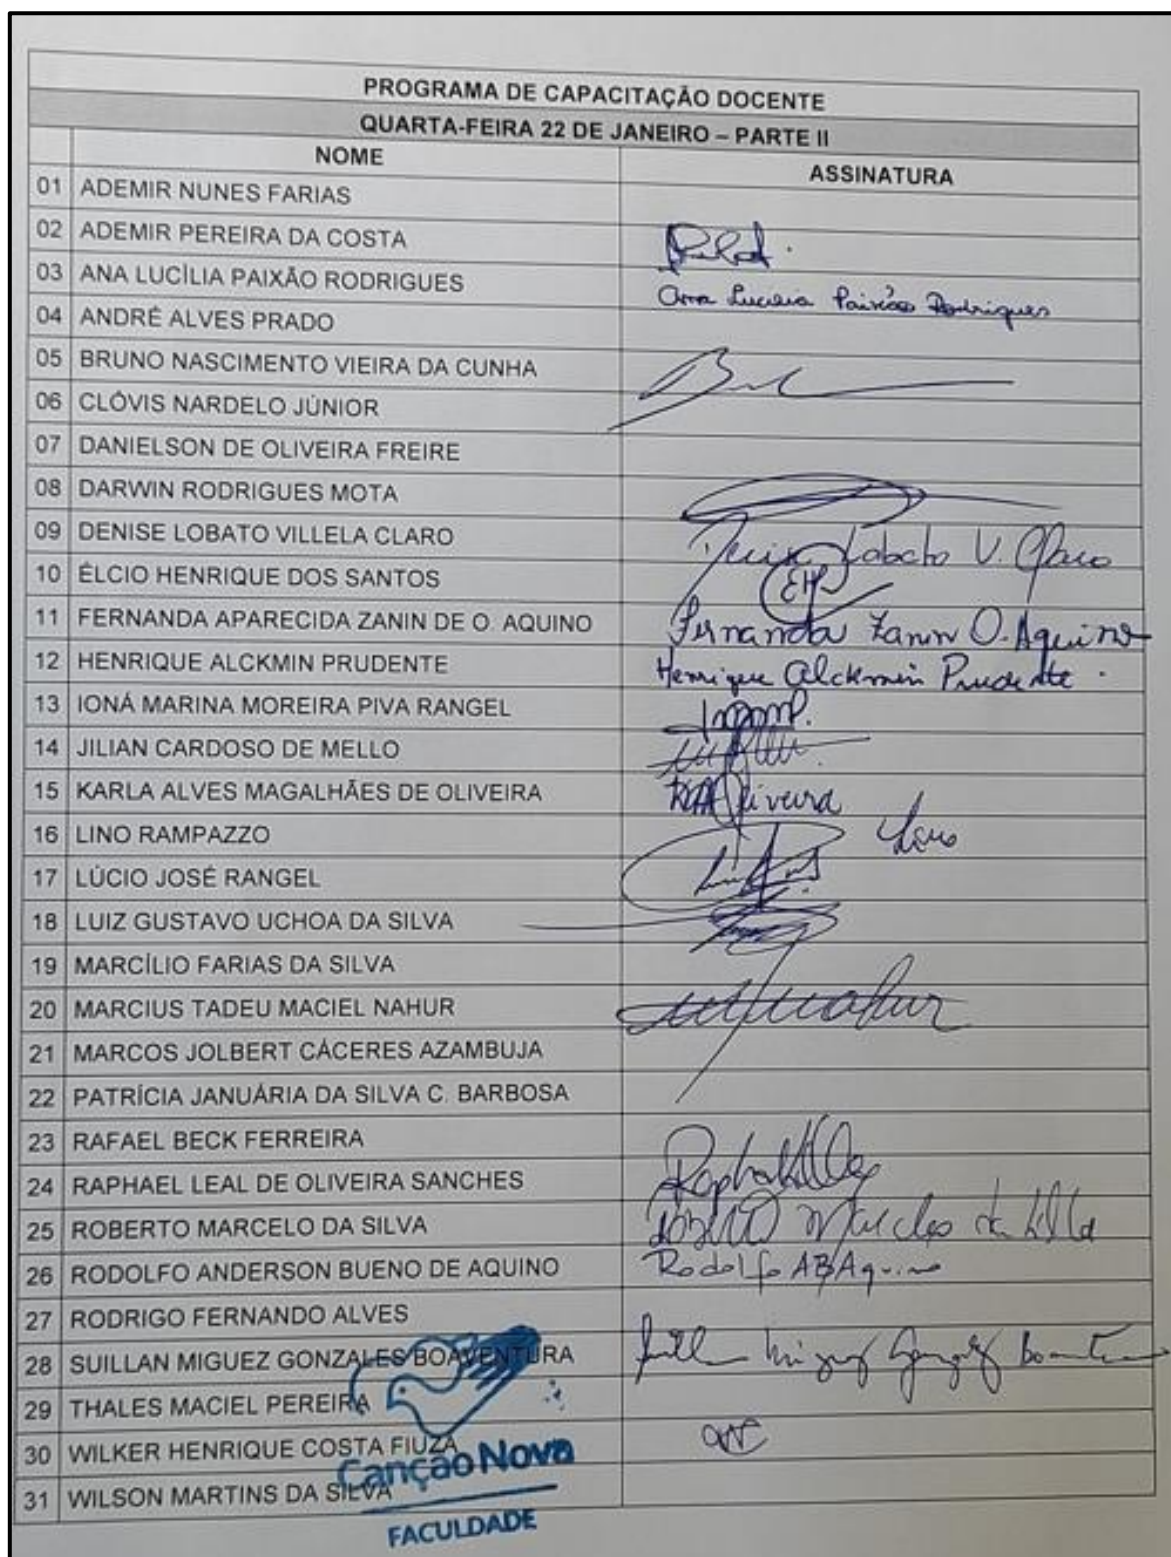 PROGRAMA DE CAPACITAÇÃO DOCENTE
QUARTA-FEIRA 22 DE JANEIRO – PARTE II
NOME ASSINATURA
01 ADEMIR NUNES FARIAS
02 ADEMIR PEREIRA DA COSTA
03 ANA LUCÍLIA PAIXÃO RODRIGUES Ana Lucilia Paixão Rodrigues
04 ANDRÉ ALVES PRADO
05 BRUNO NASCIMENTO VIEIRA DA CUNHA
06 CLÓVIS NARDELO JÚNIOR
07 DANIELSON DE OLIVEIRA FREIRE
08 DARWIN RODRIGUES MOTA
09 DENISE LOBATO VILLELA CLARO Denise Lobato V. Claro
10 ÉLCIO HENRIQUE DOS SANTOS EHS
11 FERNANDA APARECIDA ZANIN DE O. AQUINO Fernanda Zanin O. Aquino
12 HENRIQUE ALCKMIN PRUDENTE Henrique Alckmin Prudente.
13 IONÁ MARINA MOREIRA PIVA RANGEL
14 JILIAN CARDOSO DE MELLO
15 KARLA ALVES MAGALHÃES DE OLIVEIRA KAMOliveira
16 LINO RAMPAZZO Lino
17 LÚCIO JOSÉ RANGEL
18 LUIZ GUSTAVO UCHOA DA SILVA
19 MARCÍLIO FARIAS DA SILVA
20 MARCIUS TADEU MACIEL NAHUR
21 MARCOS JOLBERT CÁCERES AZAMBUJA
22 PATRÍCIA JANUÁRIA DA SILVA C. BARBOSA
23 RAFAEL BECK FERREIRA
24 RAPHAEL LEAL DE OLIVEIRA SANCHES
25 ROBERTO MARCELO DA SILVA Roberto Marcelo da Silva
26 RODOLFO ANDERSON BUENO DE AQUINO Rodolfo ABAquino
27 RODRIGO FERNANDO ALVES
28 SUILLAN MIGUEZ GONZALES BOAVENTURA Suillan Miguez Gonzalez Boaventura
29 THALES MACIEL PEREIRA
30 WILKER HENRIQUE COSTA FIUZA
31 WILSON MARTINS DA SILVA
Canção Nova
FACULDADE